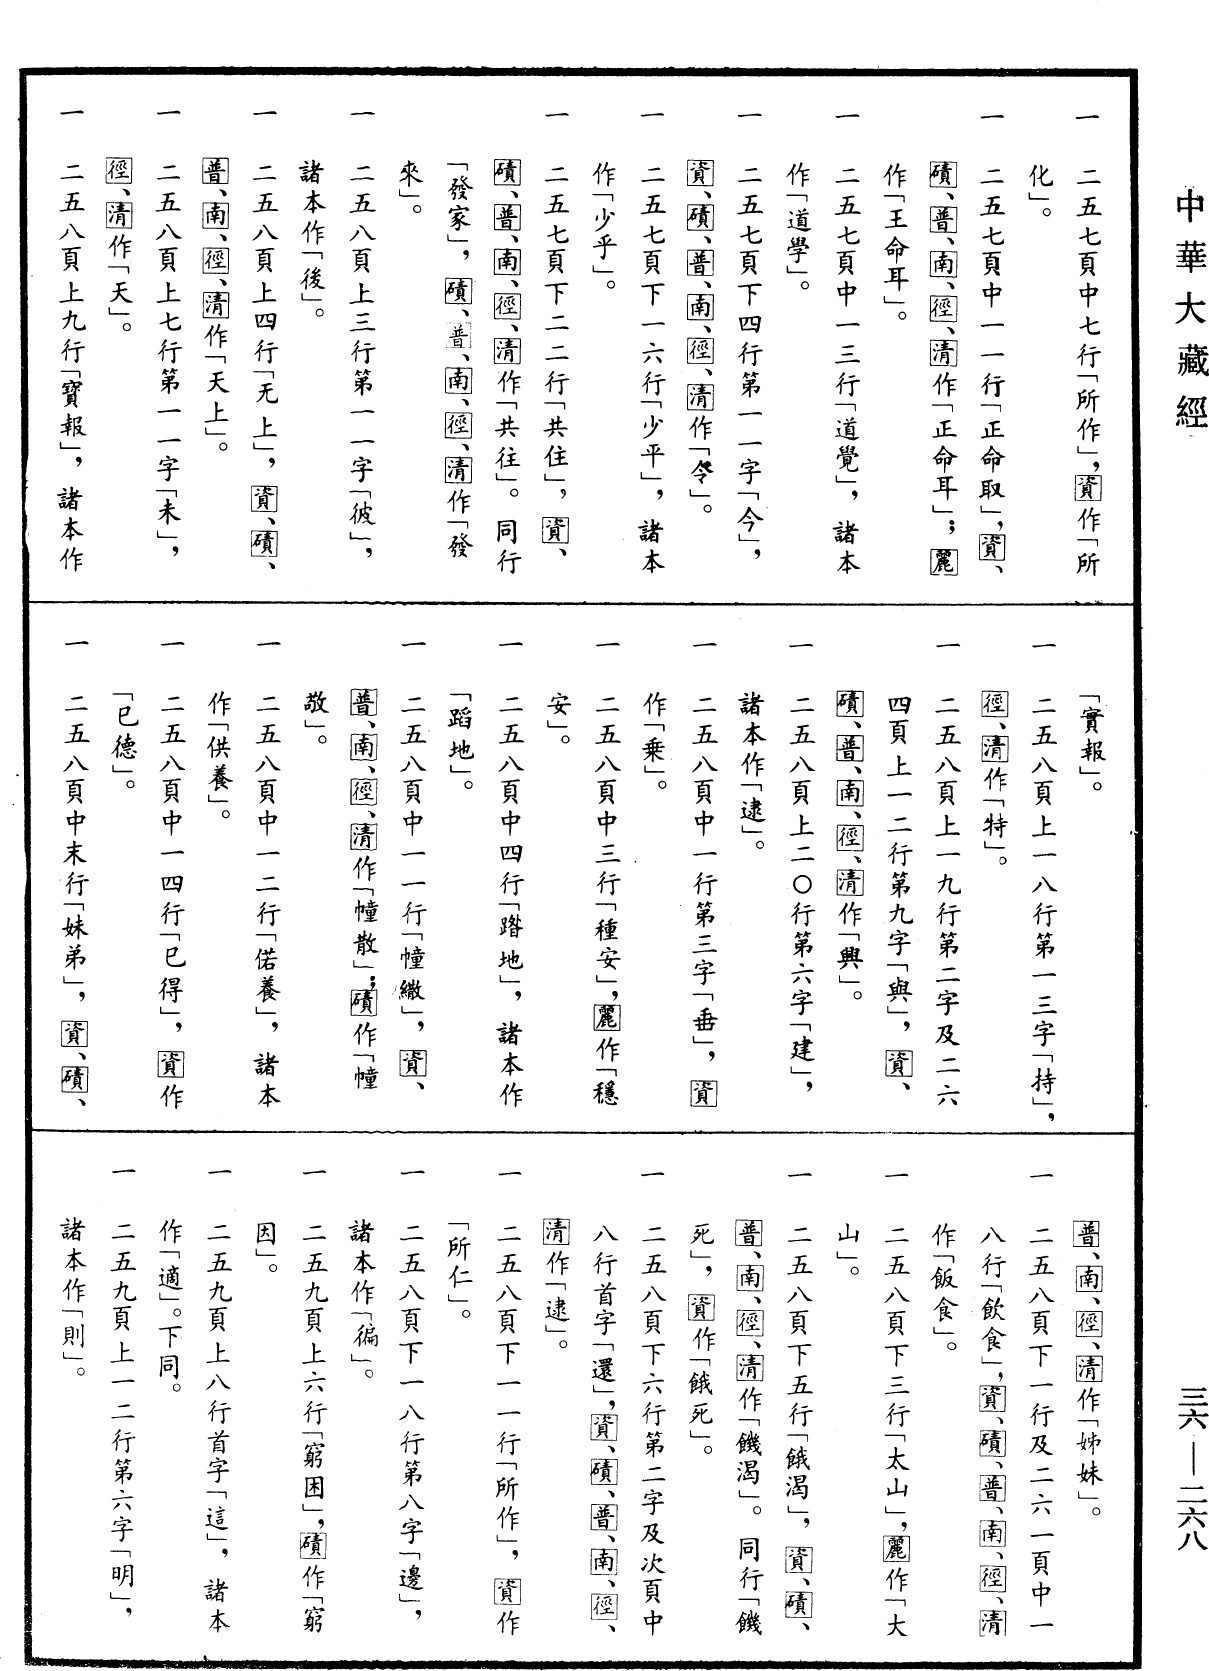 中華大藏經
一　二五七頁中七行「所作」，資作「所
化」。
一　二五七頁中一一行「正命取」，資、
磧、普、南、徑、清作「正命耳」；麗
作「王命耳」。
一　二五七頁中一三行「道覺」，諸本
作「道學」。
一　二五七頁下四行第一一字「今」，
資、磧、普、南、徑、清作「令」。
一　二五七頁下一六行「少平」，諸本
作「少乎」。
一　二五七頁下二二行「共住」，資、
磧、普、南、徑、清作「共往」。同行
「發家」，磧、普、南、徑、清作「發
來」。
一　二五八頁上三行第一一字「彼」，
諸本作「後」。
一　二五八頁上四行「无上」，資、磧、
普、南、徑、清作「天上」。
一　二五八頁上七行第一一字「未」，
徑、清作「天」。
一　二五八頁上九行「寶報」，諸本作
「實報」。
一　二五八頁上一八行第一三字「持」，
徑、清作「特」。
一　二五八頁上一九行第二字及二六
四頁上一二行第九字「與」，資、
磧、普、南、徑、清作「興」。
一　二五八頁上二〇行第六字「建」，
諸本作「逮」。
一　二五八頁中一行第三字「垂」，資
作「乗」。
一　二五八頁中三行「種安」，麗作「穩
安」。
一　二五八頁中四行「踏地」，諸本作
「蹈地」。
一　二五八頁中一一行「幢繖」，資、
普、南、徑、清作「幢散」；磧作「幢
敬」。
一　二五八頁中一二行「偌養」，諸本
作「供養」。
一　二五八頁中一四行「已得」，資作
「已德」。
一　二五八頁中末行「妹弟」，資、磧、
普、南、徑、清作「姊妹」。
一　二五八頁下一行及二六一頁中一
八行「飲食」，資、磧、普、南、徑、清
作「飯食」。
一　二五八頁下三行「太山」，麗作「大
山」。
一　二五八頁下五行「餓渴」，資、磧、
普、南、徑、清作「饑渴」。同行「饑
死」，資作「餓死」。
一　二五八頁下六行第二字及次頁中
八行首字「還」，資、磧、普、南、徑、
清作「逮」。
一　二五八頁下一一行「所作」，資作
「所仁」。
一　二五八頁下一八行第八字「邊」，
諸本作「徧」。
一　二五九頁上六行「窮困」，磧作「窮
因」。
一　二五九頁上八行首字「這」，諸本
作「適」。下同。
一　二五九頁上一二行第六字「明」，
諸本作「則」。
三六—二六八